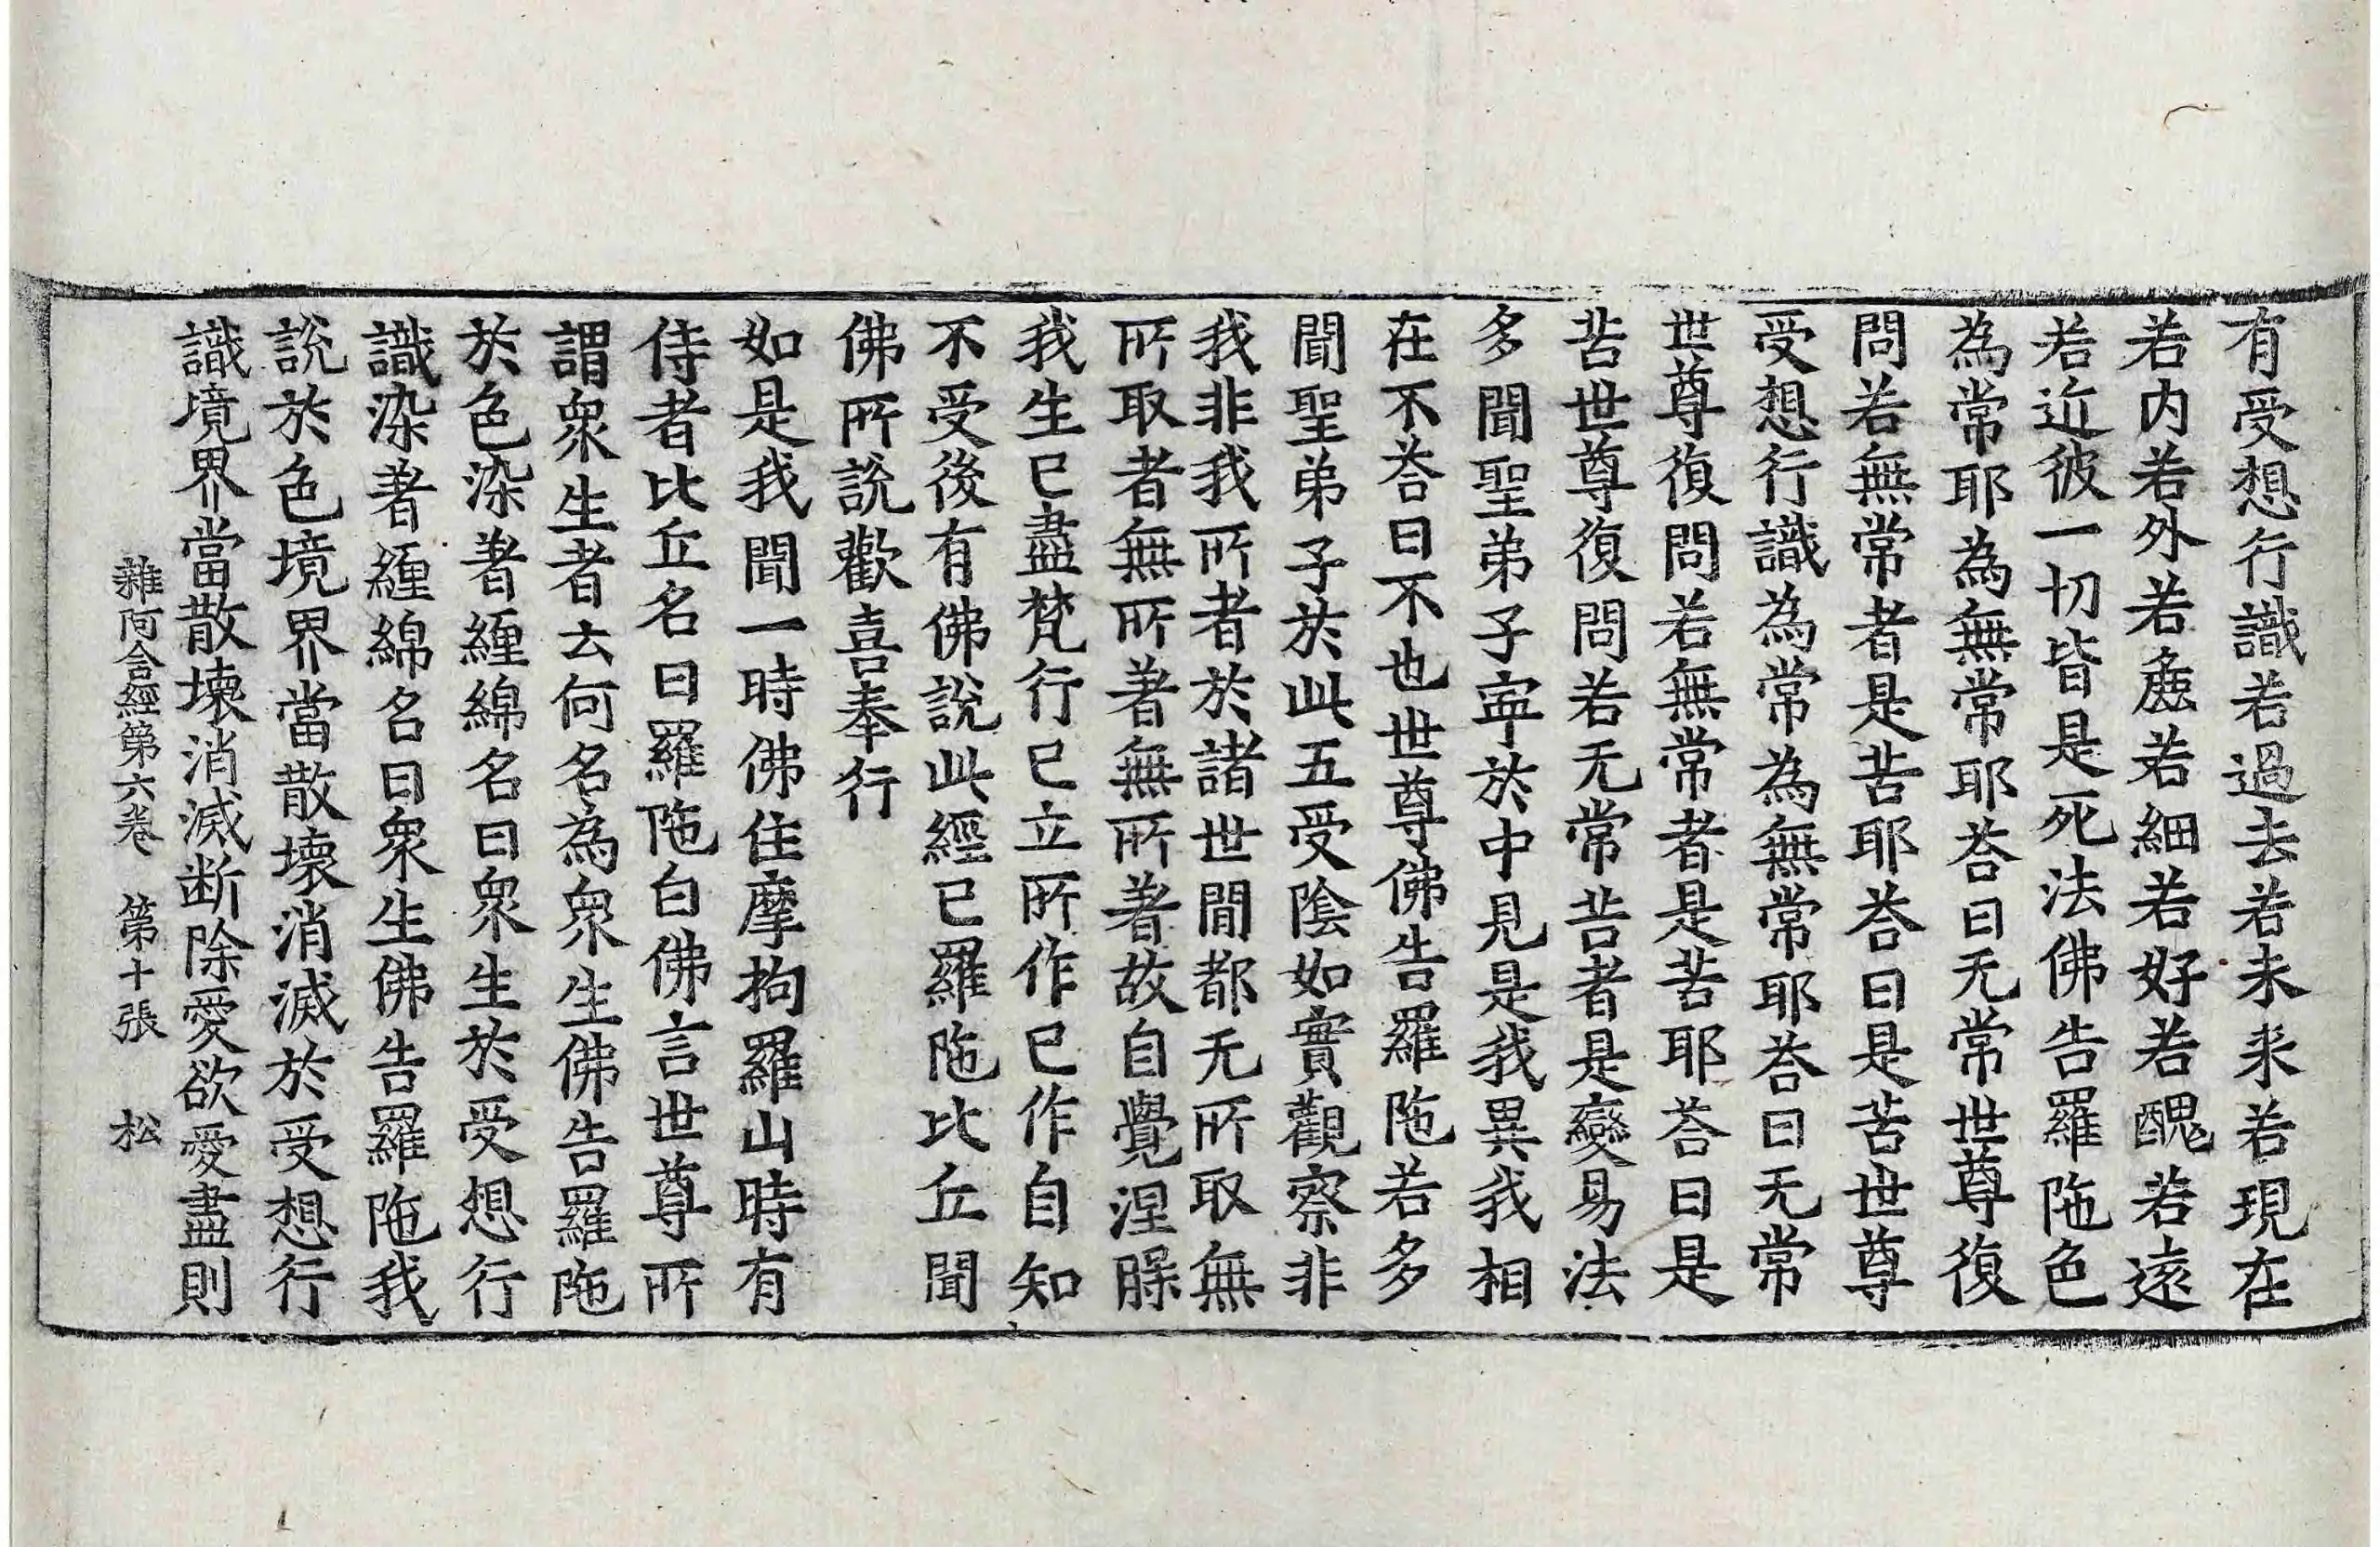 有受想行識若過去若未来若現在
若内若外若麁若細若好若醜若遠
若近彼一切皆是死法佛告羅陁色
為常耶為無常耶荅曰无常世尊復
問若無常者是苦耶荅曰是苦世尊
受想行識為常為無常耶荅曰无常
世尊復問若無常者是苦耶荅曰是
苦世尊復問若无常苦者是變易法
多聞聖弟子寧於中見是我異我相
在不荅曰不也世尊佛告羅陁若多
聞聖弟子於此五受陰如實觀察非
我非我所者於諸世閒都无所取無
所取者無所著無所著故自覺涅槃
我生已盡梵行已立所作已作自知
不受後有佛說此經已羅陁比丘聞
佛所說歡喜奉行
如是我聞一時佛住摩拘羅山時有
侍者比丘名曰羅陁白佛言世尊所
謂衆生者云何名為衆生佛告羅陁
於色染著纏綿名曰衆生於受想行
識染著纏綿名曰衆生佛告羅陁我
說於色境界當散壞消滅於受想行
識境界當散壞消滅断除愛欲愛盡則
雜阿含經第六卷 第十張 松